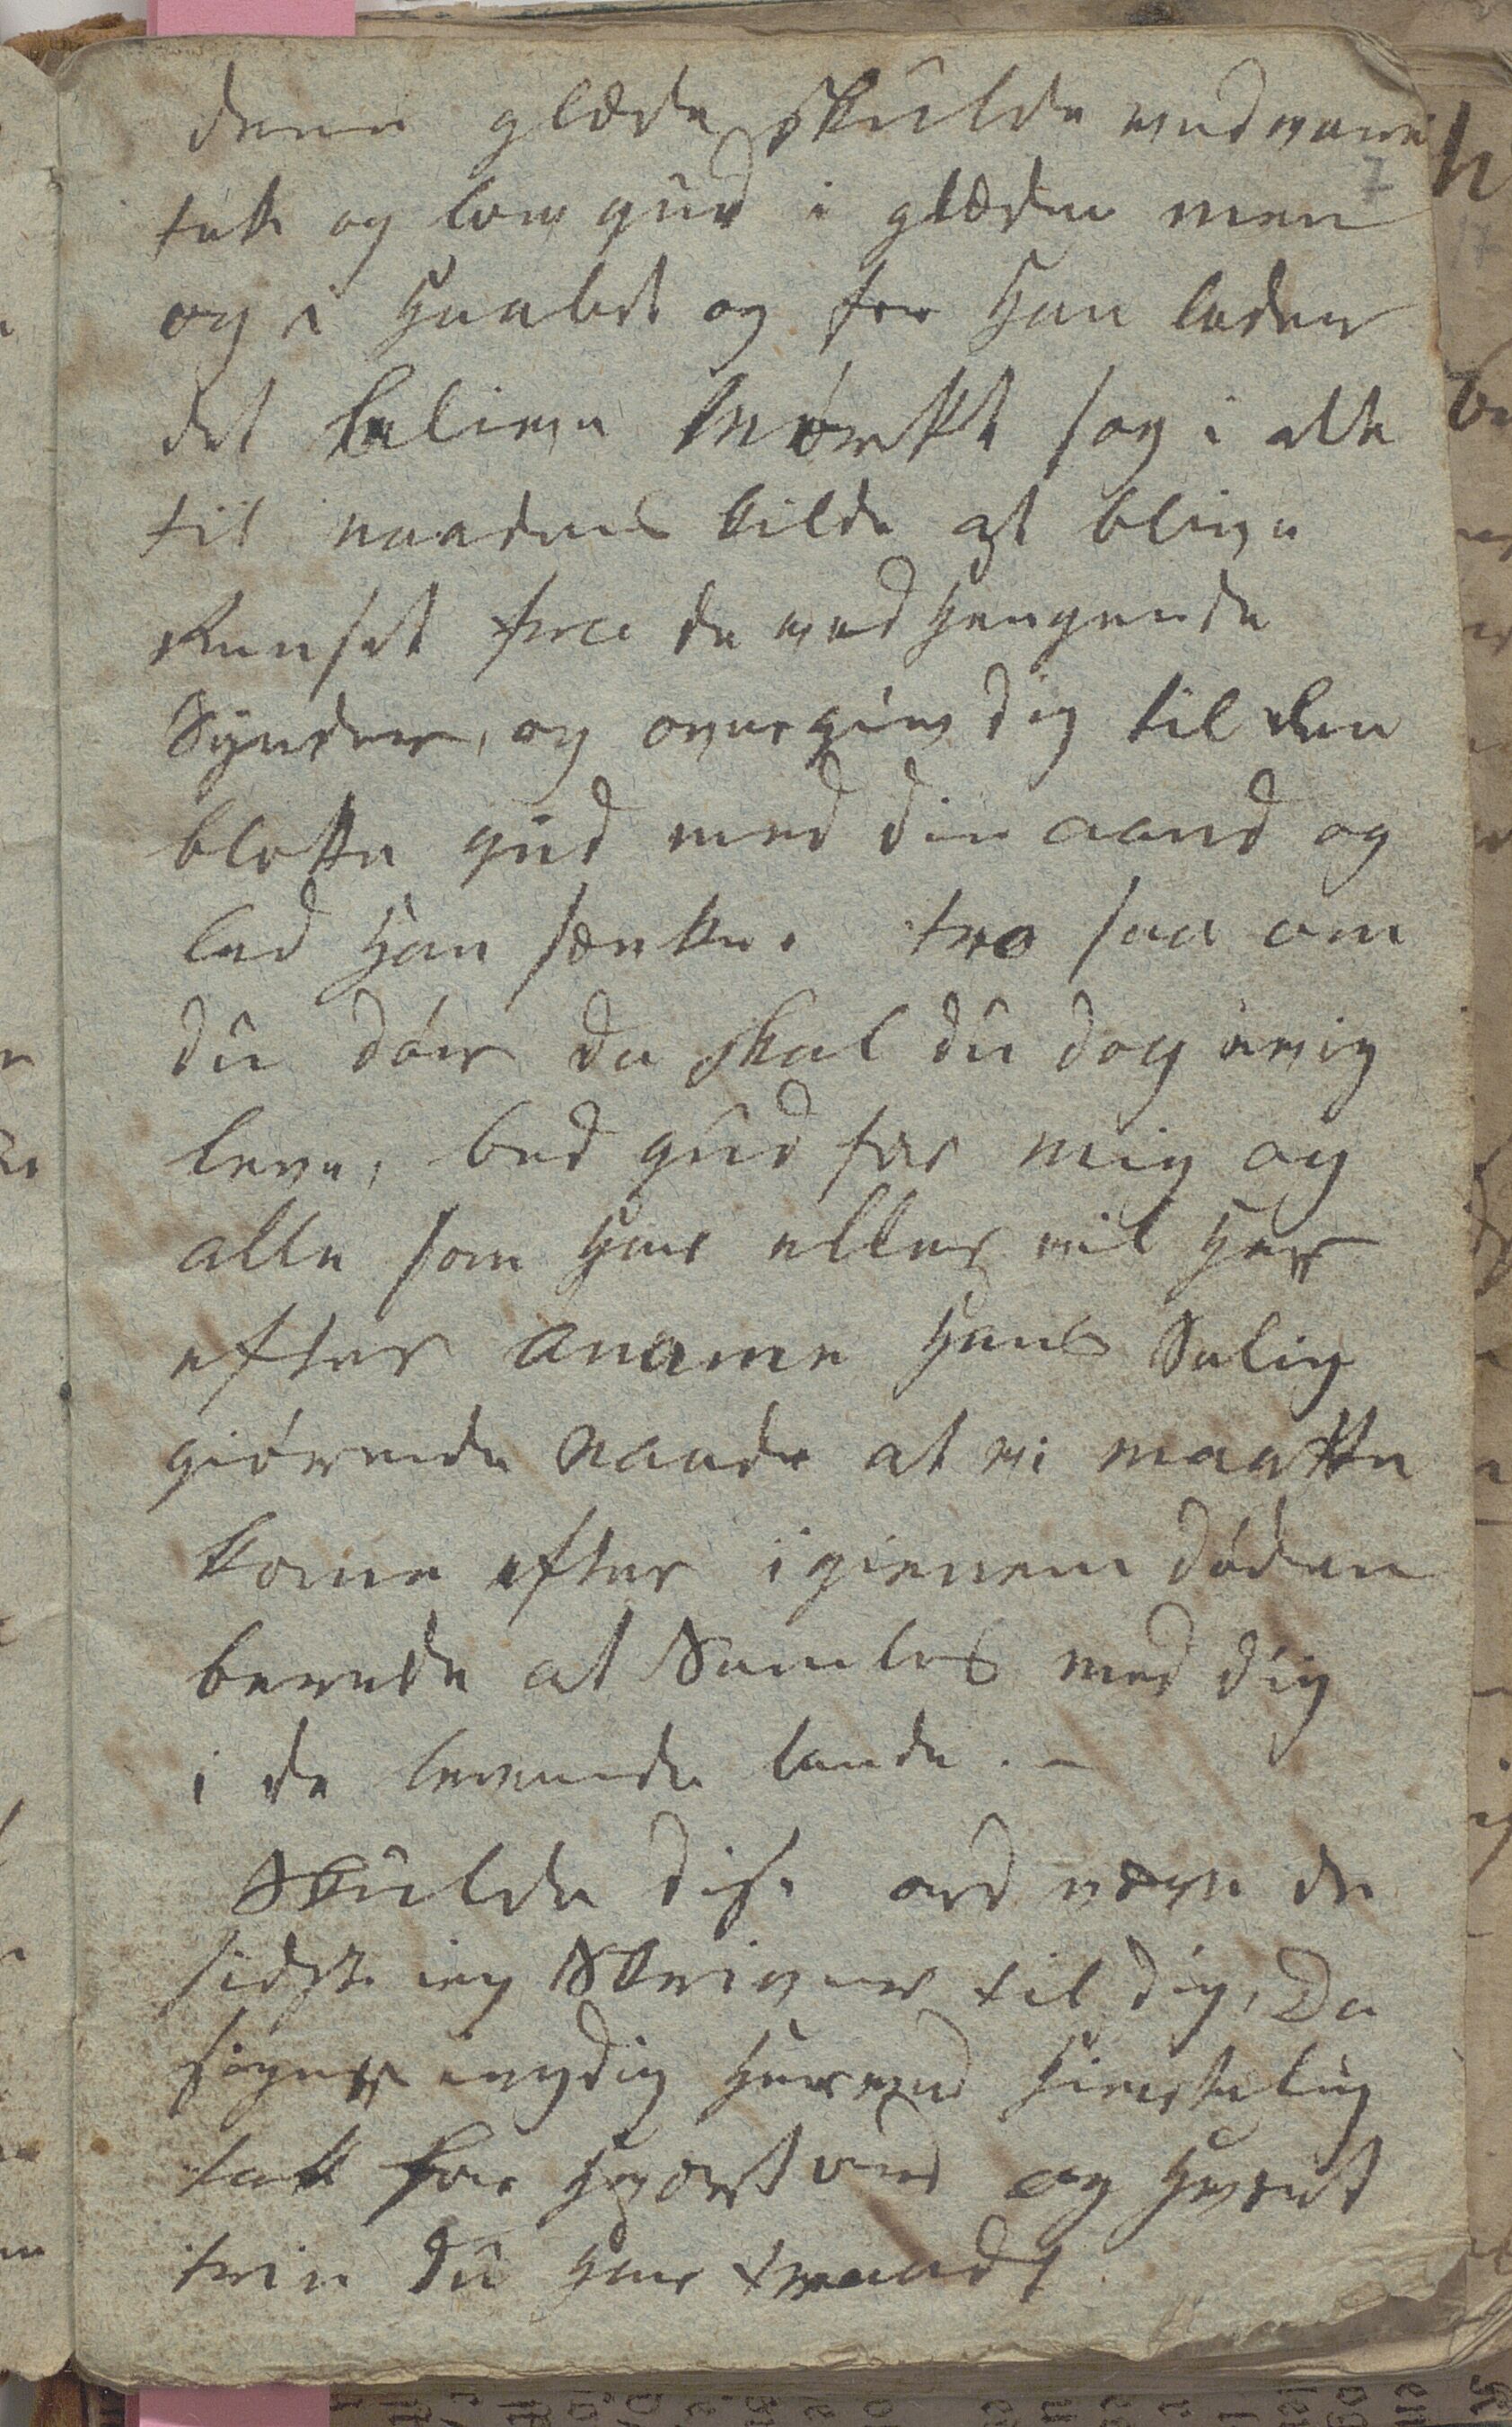 denne glæde skulde vedvare
7
tak og lov gud i glæden men
og i Haabet og for Han lader
det belive Mørkt søg i alt
til naadens kilde at blive
Renset fra de vedhengende
Synder, og overgiv dig til den
blotte gud med din aand og
lad Ham sørke. tro saa om
du dør da skal du dog ævig
leve, bed gud for mig og
alle som Har eller vil Her
efter Aname Hans Salig
giørende Naade at vi maatte
kome efter igienem døden
berede at Samles med dig
i de levende lande. -
Skulde disse ord være de
sidste ieg Skriver til dig, Da
siger ieg dig Herved Hiertelig
tak for Hvort ord og Hvert
trin du Har traadt